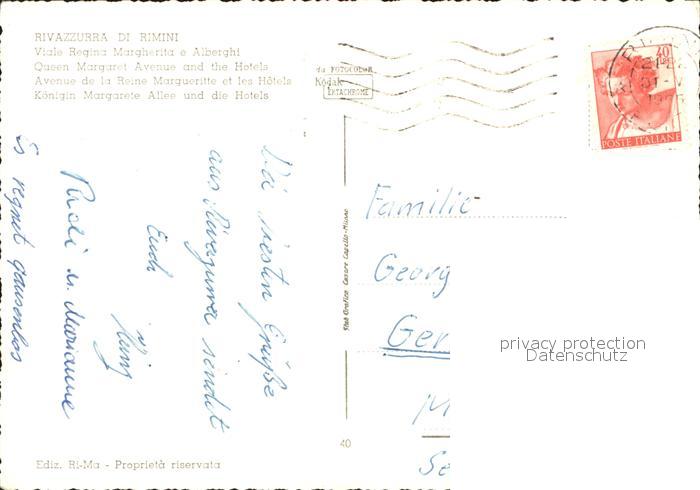 RIVAZZURRA DI RIMINI
Viale Regina Margherita e Alberghi
Queen Margaret Avenue and the Hotels
Avenue de la Reine Margueritte et les Hôtels
Königin Margarete Allee und die Hotels
da FOTOCOLOR
Kodak
EKTACHROME
40
POSTE ITALIANE
Grüße
aus Rivazzurra sendet
Euch
Rudi u. Marianne
Es regnet
Stab. Grafico Cesare Capello-Milano
Familie
Georg
Ger
M
Se
privacy protection
Datenschutz
40
Ediz. Ri-Ma - Proprietà riservata